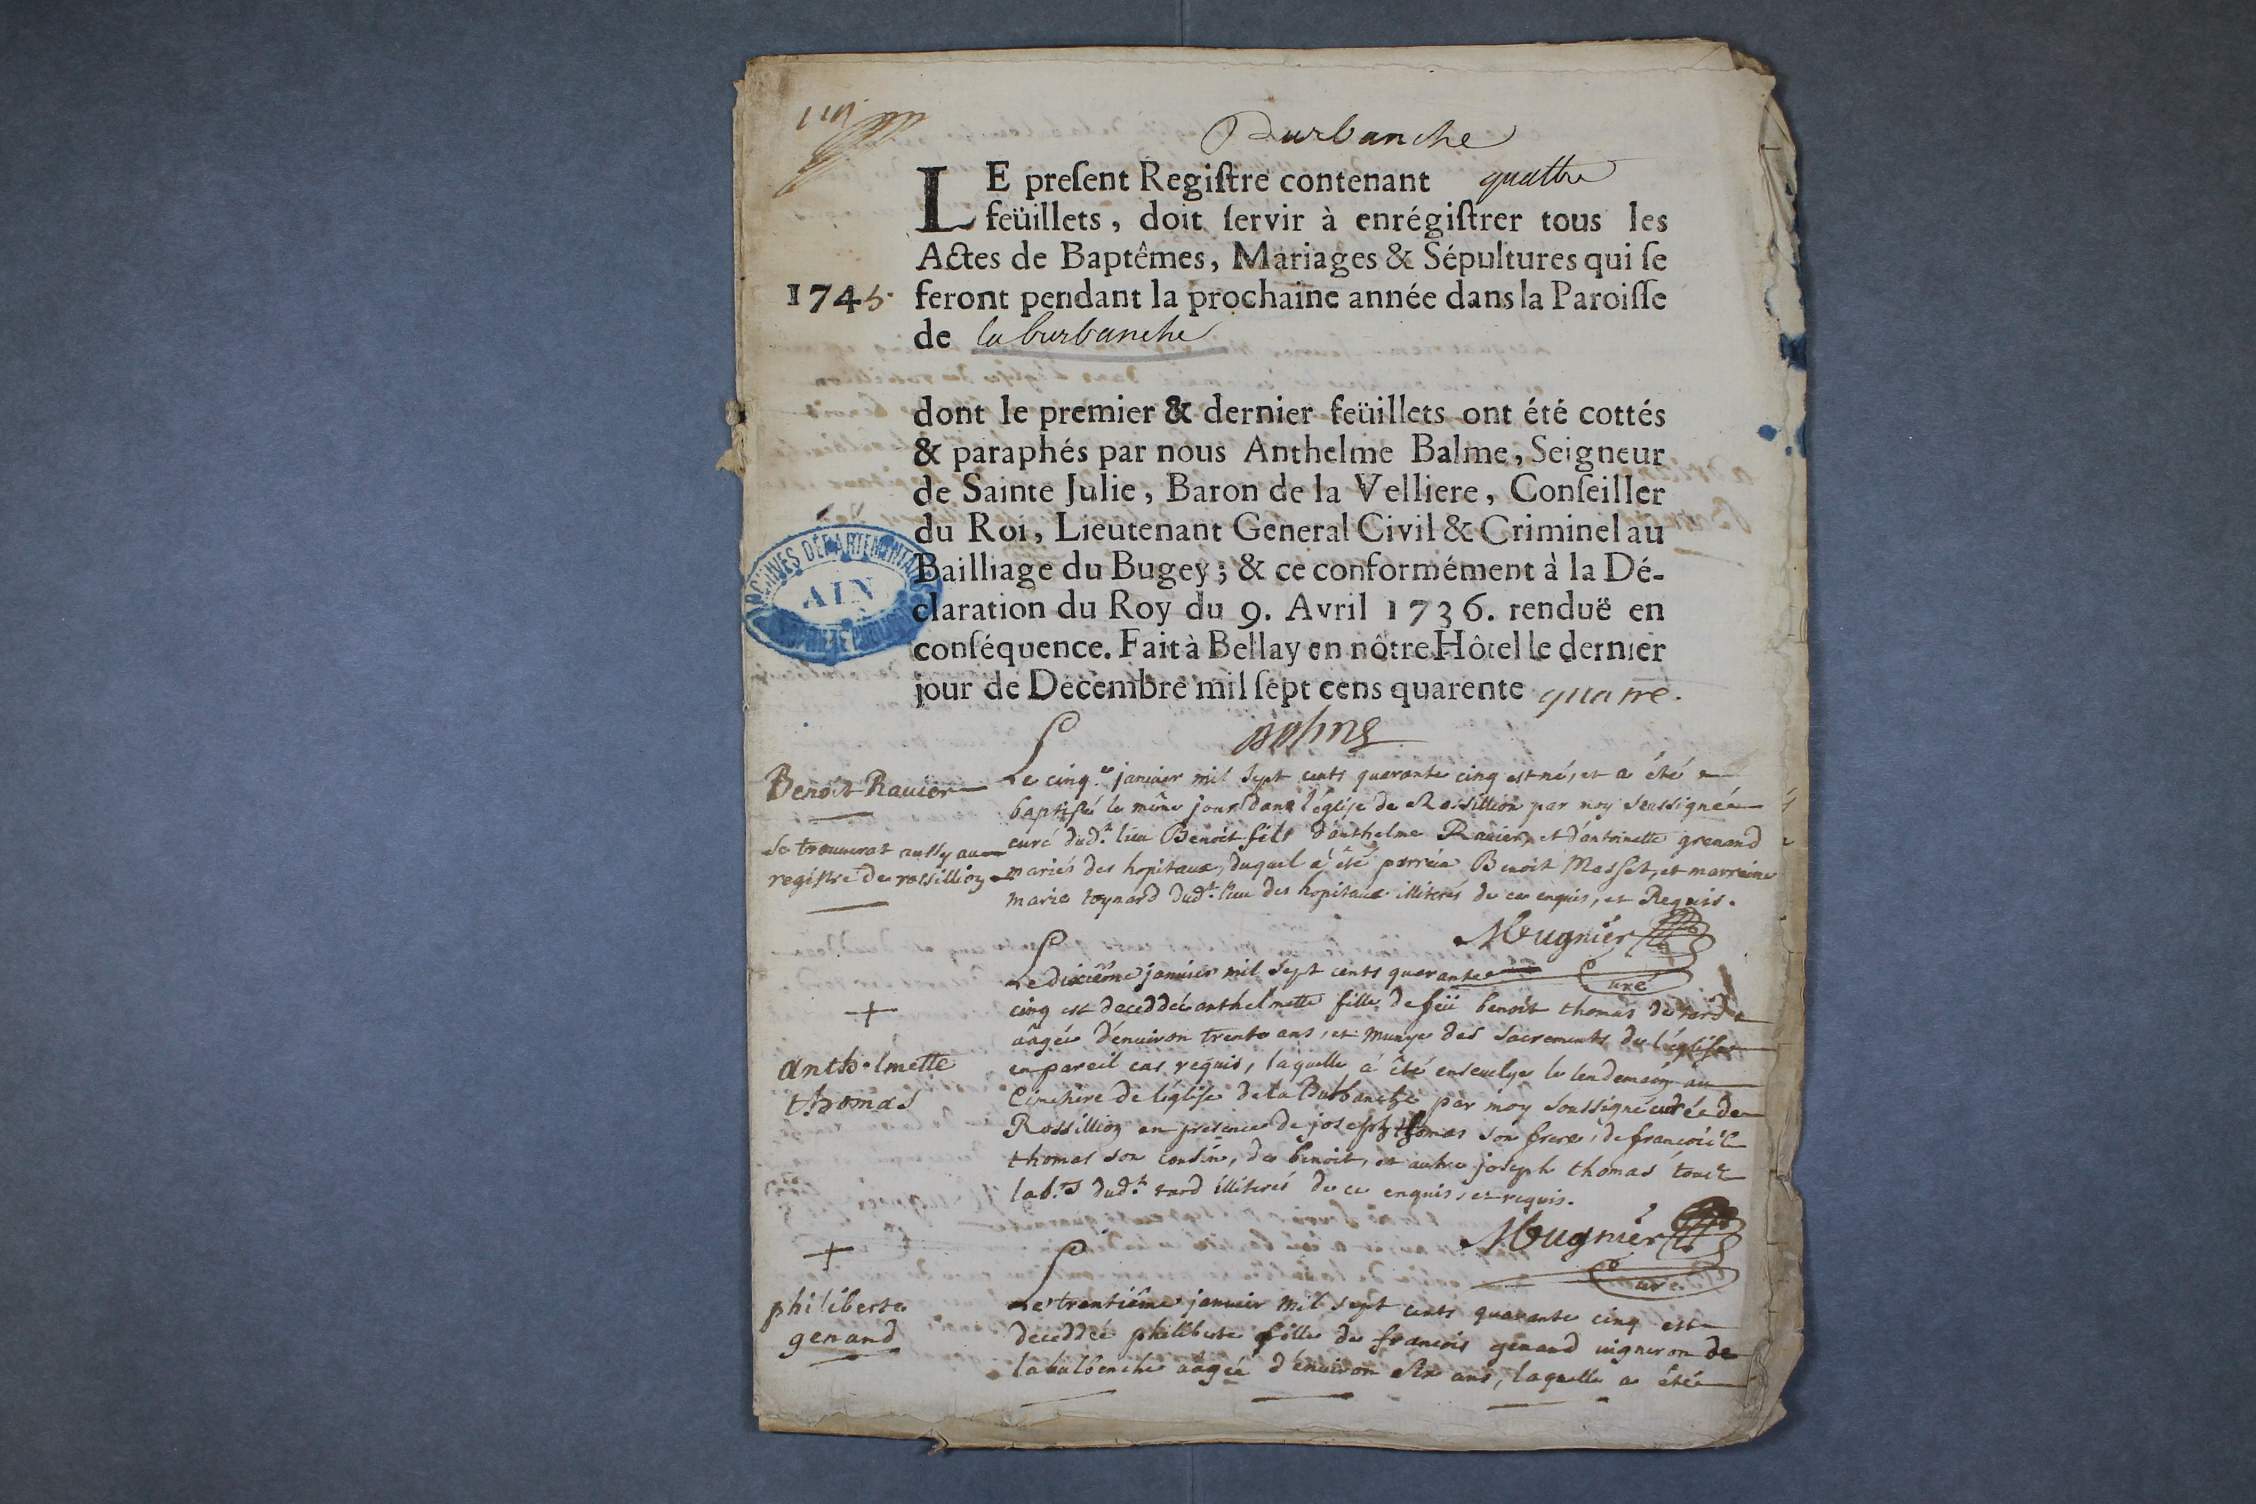 Burbanche
LE preſent Regiſtre contenant quattre
feüillets, doit ſervir à enrégiſtrer tous les
Actes de Baptêmes, Mariages & Sépultures qui ſe
1745. feront pendant la prochaine année dans la Paroiſſe
de la burbanche
dont le premier & dernier feüillets ont été cottés
& paraphés par nous Anthelme Balme, Seigneur
de Sainte Julie, Baron de la Velliere, Conſeiller
du Roi, Lieutenant General Civil & Criminel au
Bailliage du Bugey; & ce conformément à la Dé-
claration du Roy du 9. Avril 1736. renduë en
conſéquence. Fait à Bellay en nôtre Hôtel le dernier
jour de Decembre mil ſept cens quarente quatre.
ARCHIVES DÉPARTEMENTALES
AIN
PROPRIÉTÉ PUBLIQUE
Balme
Benoit Rauier
Le cinq.e januier mil sept cents quarante cinq est né, et a été
baptisé le même jour dans l'église de Rossillion par moy soussigné
curé dud.t lieu Benoit fils d'anthelme Rauier, et d'antoinette grenand
mariés des hopitaux, duquel a été parrein Benoit Masset, et marreine
marie toynard dud.t lieu des hopitaux illiterés de ce enquis, et Requis.
se trouuerat aussy au
registre de rossillion
Mugnier
curé
+
anthelmette
thomas
Le dixiême januier mil sept cents quarante
cinq est deceddée anthelmette fille de feü benoit thomas de tard
aâgée d'énuiron trente ans, et munye des sacrements de l'église
en pareil cas requis, laquelle a été enseuelye le lendemain au
Cimetiere de l'église de la Burbanche par moy soussigné curé de
Rossillion en presence de joseph thomas son frere, de francois
thomas son cousin, de benoit, et autre joseph thomas tous
lab.rs dud.t tard illiterés de ce enquis, et requis.
Mugnier
curé
+
philiberte
genand
Le trentiême januier mil sept cents quarante cinq est
deceddée philiberte fille de francois genand uigneron de
la balbenche aâgée d'énuiron six ans, laquelle a été